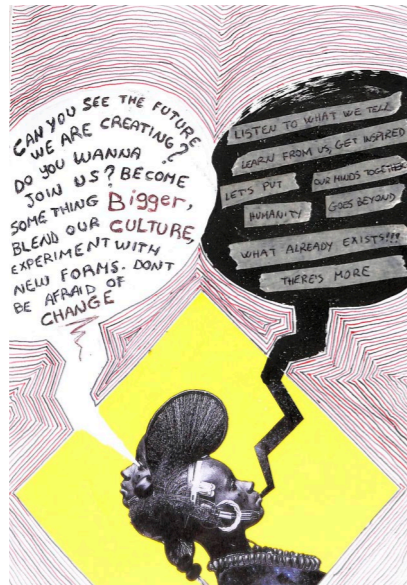 CAN YOU SEE THE FUTURE
WE ARE CREATING?
DO YOU WANNA
JOIN US? BECOME
SOMETHING Bigger,
BLEND OUR CULTURE,
EXPERIMENT WITH
NEW FORMS. DONT
BE AFRAID OF
CHANGE
LISTEN TO WHAT WE TELL
LEARN FROM US, GET INSPIRED
LET'S PUT OUR MINDS TOGETHER
HUMANITY GOES BEYOND
WHAT ALREADY EXISTS!!!
THERE'S MORE